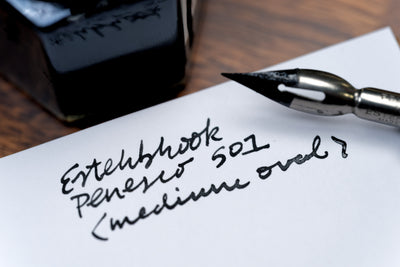 Esterbrook
Penesco 501
(medium oval)